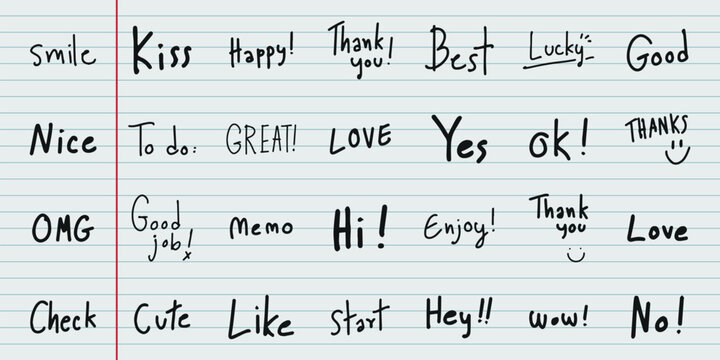 smile Kiss Happy! Thank you! Best Lucky Good
Nice To do: GREAT! LOVE Yes ok! THANKS
OMG Good job! Memo Hi! Enjoy! Thank you Love
Check Cute Like start Hey!! wow! No!